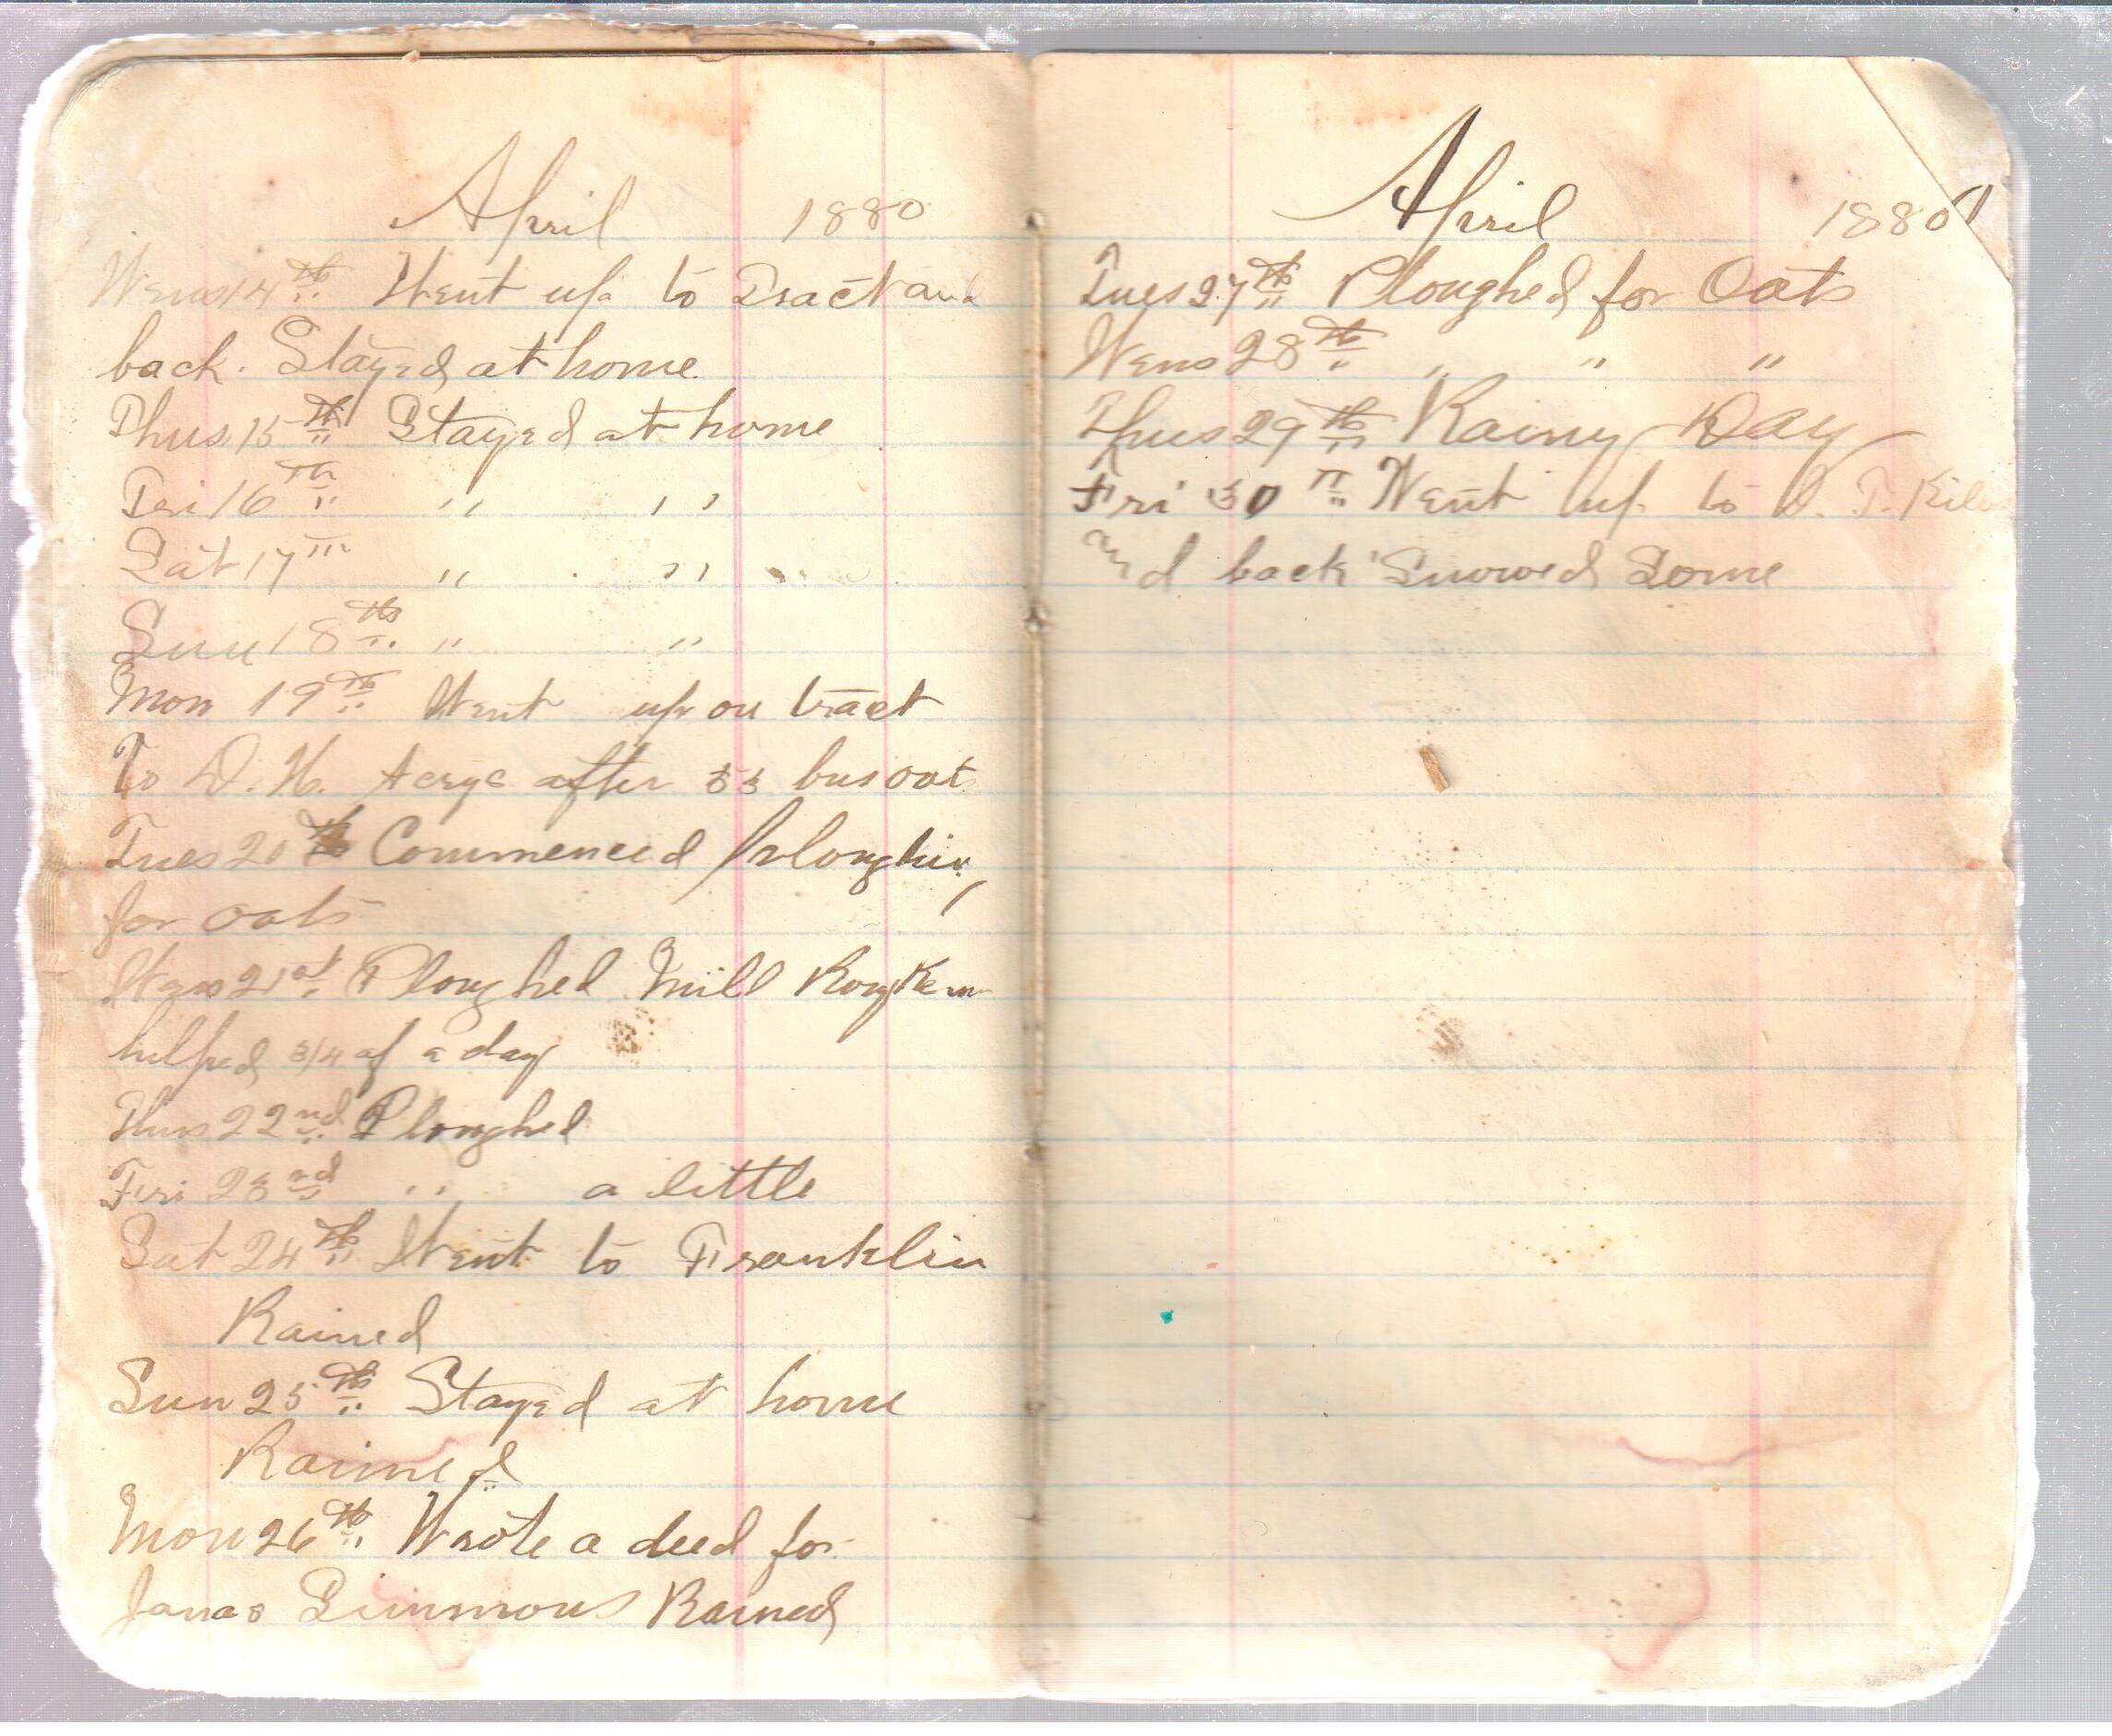 April 1880
Wens 14th Went up to Tract and
back. Stayed at home
Thus 15th Stayed at home
Fri 16th " "
Sat 17th " "
Sun 18th " "
Mon 19th Went up on tract
To D. H. after bus oats
Tues 20th Commenced ploughing
for oats
Wens 21st Ploughed Mill
helped 3/4 of a day
Thus 22nd Ploughed
Fri 23rd " a little
Sat 24th Went to Franklin
Rained
Sun 25th Stayed at home
Rained
Mon 26th Wrote a deed for
Jonas Simmons Rained
April 1880
Tues 27th Ploughed for Oats
Wens 28th " " "
Thus 29th Rainy Day
Fri 30th Went up to
and back Snowed Some